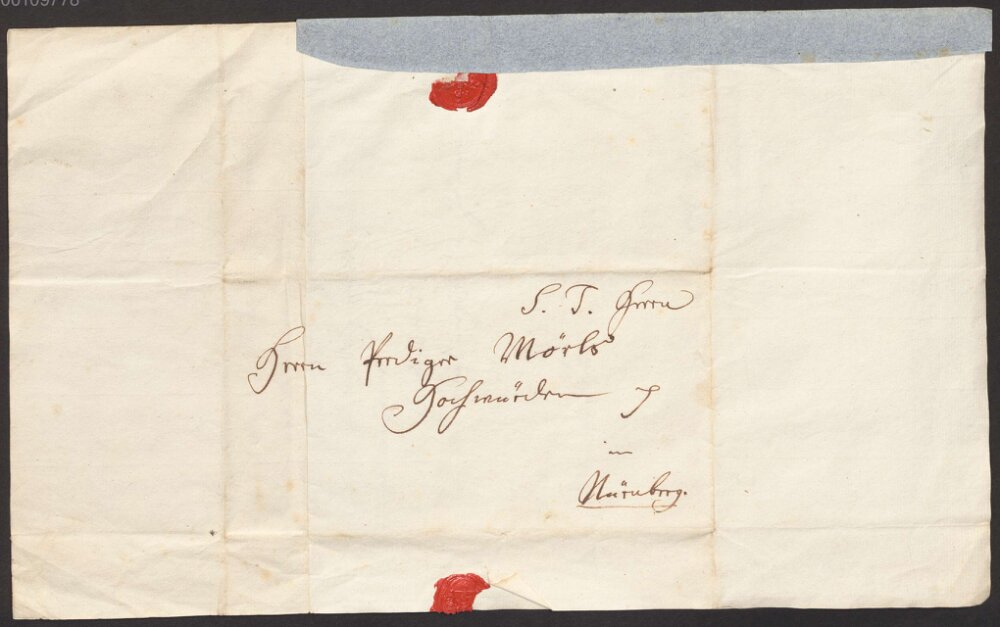 00109778
S. T. Herrn
Herrn Prediger Mörls
Hochwürden
in
Nürnberg.